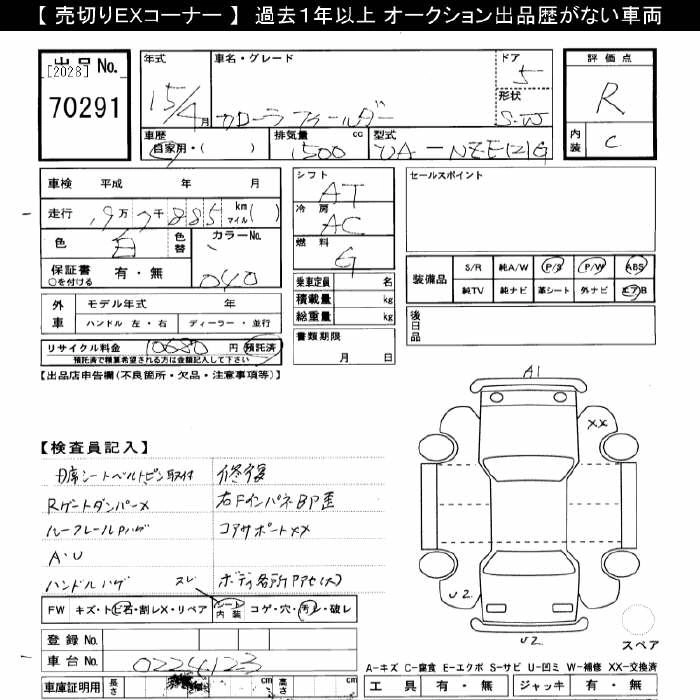 【 売切りEXコーナー 】 過去1年以上 オークション出品歴がない車両
出品No.
[2028]
70291
年式
15/4月
車名・グレード
カローラフィールダー
ドア
5
形状
S.W
評価点
R
内装
C
車歴
自家用・( )
排気量 cc
1500
型式
UA-NZE121G
車検 平成 年 月
走行 19万 7千 885 km マイル( )
色 白 色替
カラーNo.
040
保証書 有・無
○を付ける
外車 モデル年式 年
ハンドル 左・右 ディーラー・並行
リサイクル料金 10680 円 預託済
預託済で精算希望される方は金額記入して下さい
【出品店申告欄(不良箇所・欠品・注意事項等)】
シフト
AT
冷房
AC
燃料
G
乗車定員 名
積載量 kg
総重量 kg
書類期限
月 日
セールスポイント
装備品
S/R 純A/W P/S P/W ABS
純TV 純ナビ 革シート 外ナビ エアB
後日品
【検査員記入】
シートベルトピン取付
Rゲートダンパー×
ルーフレールPハゲ
A・U
ハンドルハゲ
スレ
修復
右FインパネBP歪
コアサポートXX
ボディ各所
FW キズ・トビ石・割レX・リペア
シート内装 コゲ・穴・汚レ・破レ
登録No.
車台No. 0224123
車庫証明用 長さ cm cm 高さ cm
A1
XX
U2
U2
スペア
A-キズ C-腐食 E-エクボ S-サビ U-凹ミ W-補修 XX-交換済
工具 有・無 ジャッキ 有・無